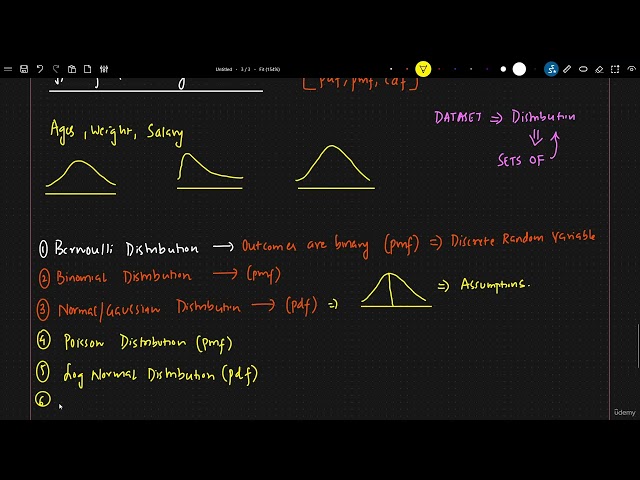 Untitled - 3 / 3 - Fit (154%)
[pdf, pmf, cdf]
Ages, Weight, Salary
DATASET ⇒ Distribution
SETS OF
① Bernoulli Distribution → Outcomes are binary (pmf) ⇒ Discrete Random Variable
② Binomial Distribution → (pmf)
③ Normal/Gaussian Distribution → (pdf) ⇒ ⇒ Assumptions.
④ Poisson Distribution (pmf)
⑤ Log Normal Distribution (pdf)
⑥
ûdemy